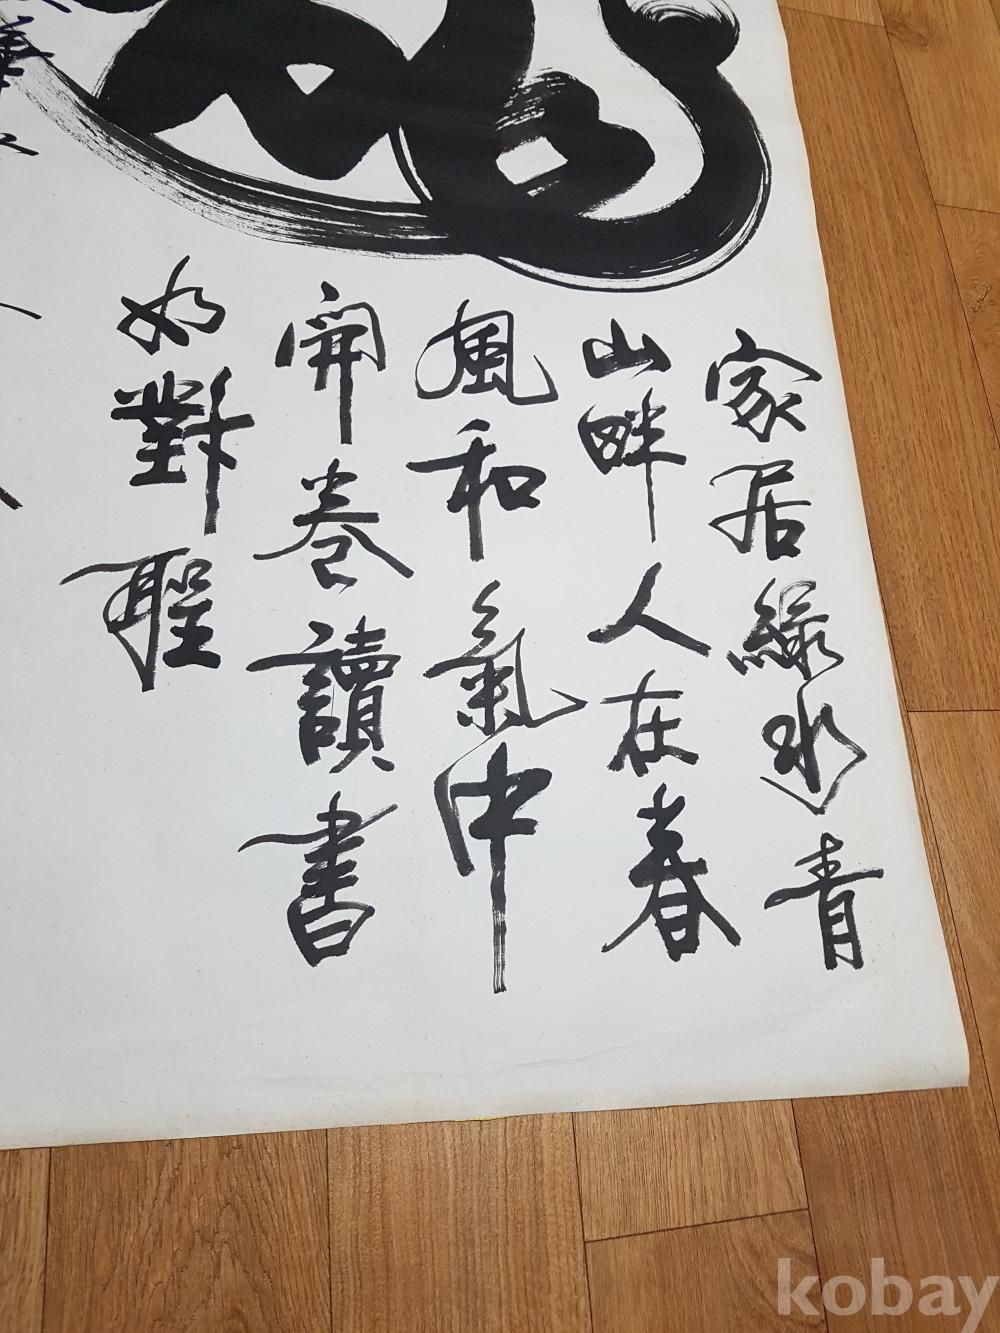 家居綠水青
山畔人在春
風和氣中
開卷讀書
如對聖
kobay